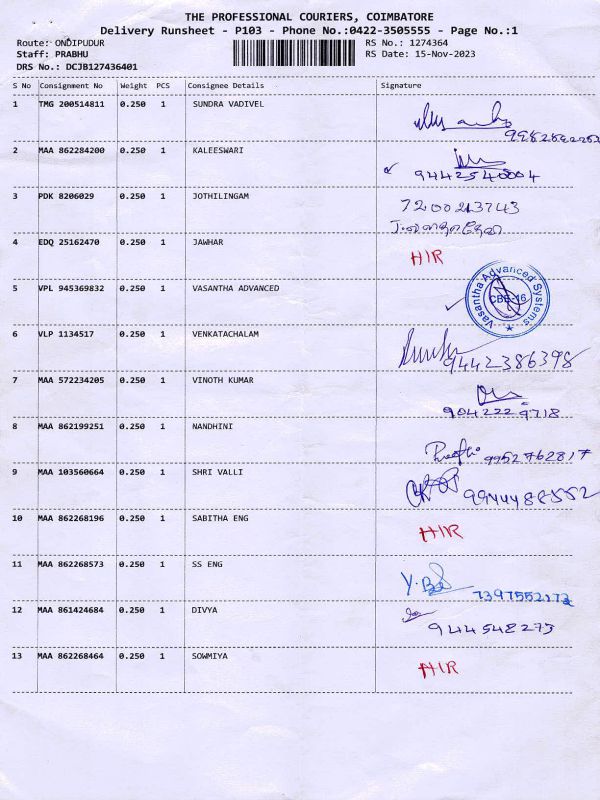 THE PROFESSIONAL COURIERS, COIMBATORE
Delivery Runsheet - P103 - Phone No.:0422-3505555 - Page No.:1
Route: ONDIPUDUR RS No.: 1274364
Staff: PRABHU RS Date: 15-Nov-2023
DRS No.: DCJB127436401
S No Consignment No Weight PCS Consignee Details Signature
1 TMG 200514811 0.250 1 SUNDRA VADIVEL
2 MAA 862284200 0.250 1 KALEESWARI
3 PDK 8206029 0.250 1 JOTHILINGAM
7200213743
4 EDQ 25162470 0.250 1 JAWHAR HIR
5 VPL 945369832 0.250 1 VASANTHA ADVANCED Vasantha Advanced Systems CBE-16
6 VLP 1134517 0.250 1 VENKATACHALAM
9442386398
7 MAA 572234205 0.250 1 VINOTH KUMAR
9042229718
8 MAA 862199251 0.250 1 NANDHINI
9952762817
9 MAA 103560664 0.250 1 SHRI VALLI
9944488552
10 MAA 862268196 0.250 1 SABITHA ENG HIR
11 MAA 862268573 0.250 1 SS ENG
7397552173
12 MAA 861424684 0.250 1 DIVYA
944548273
13 MAA 862268464 0.250 1 SOWMIYA HIR